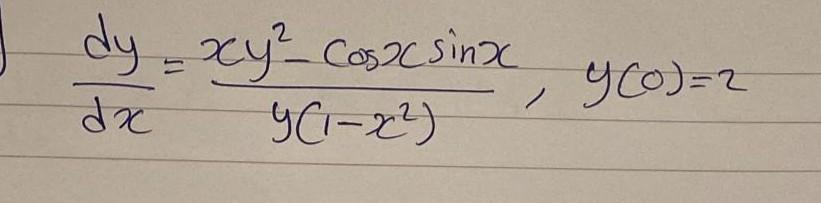 dy/dx = (xy² - cosx sinx)/(y(1-x²)), y(0)=2